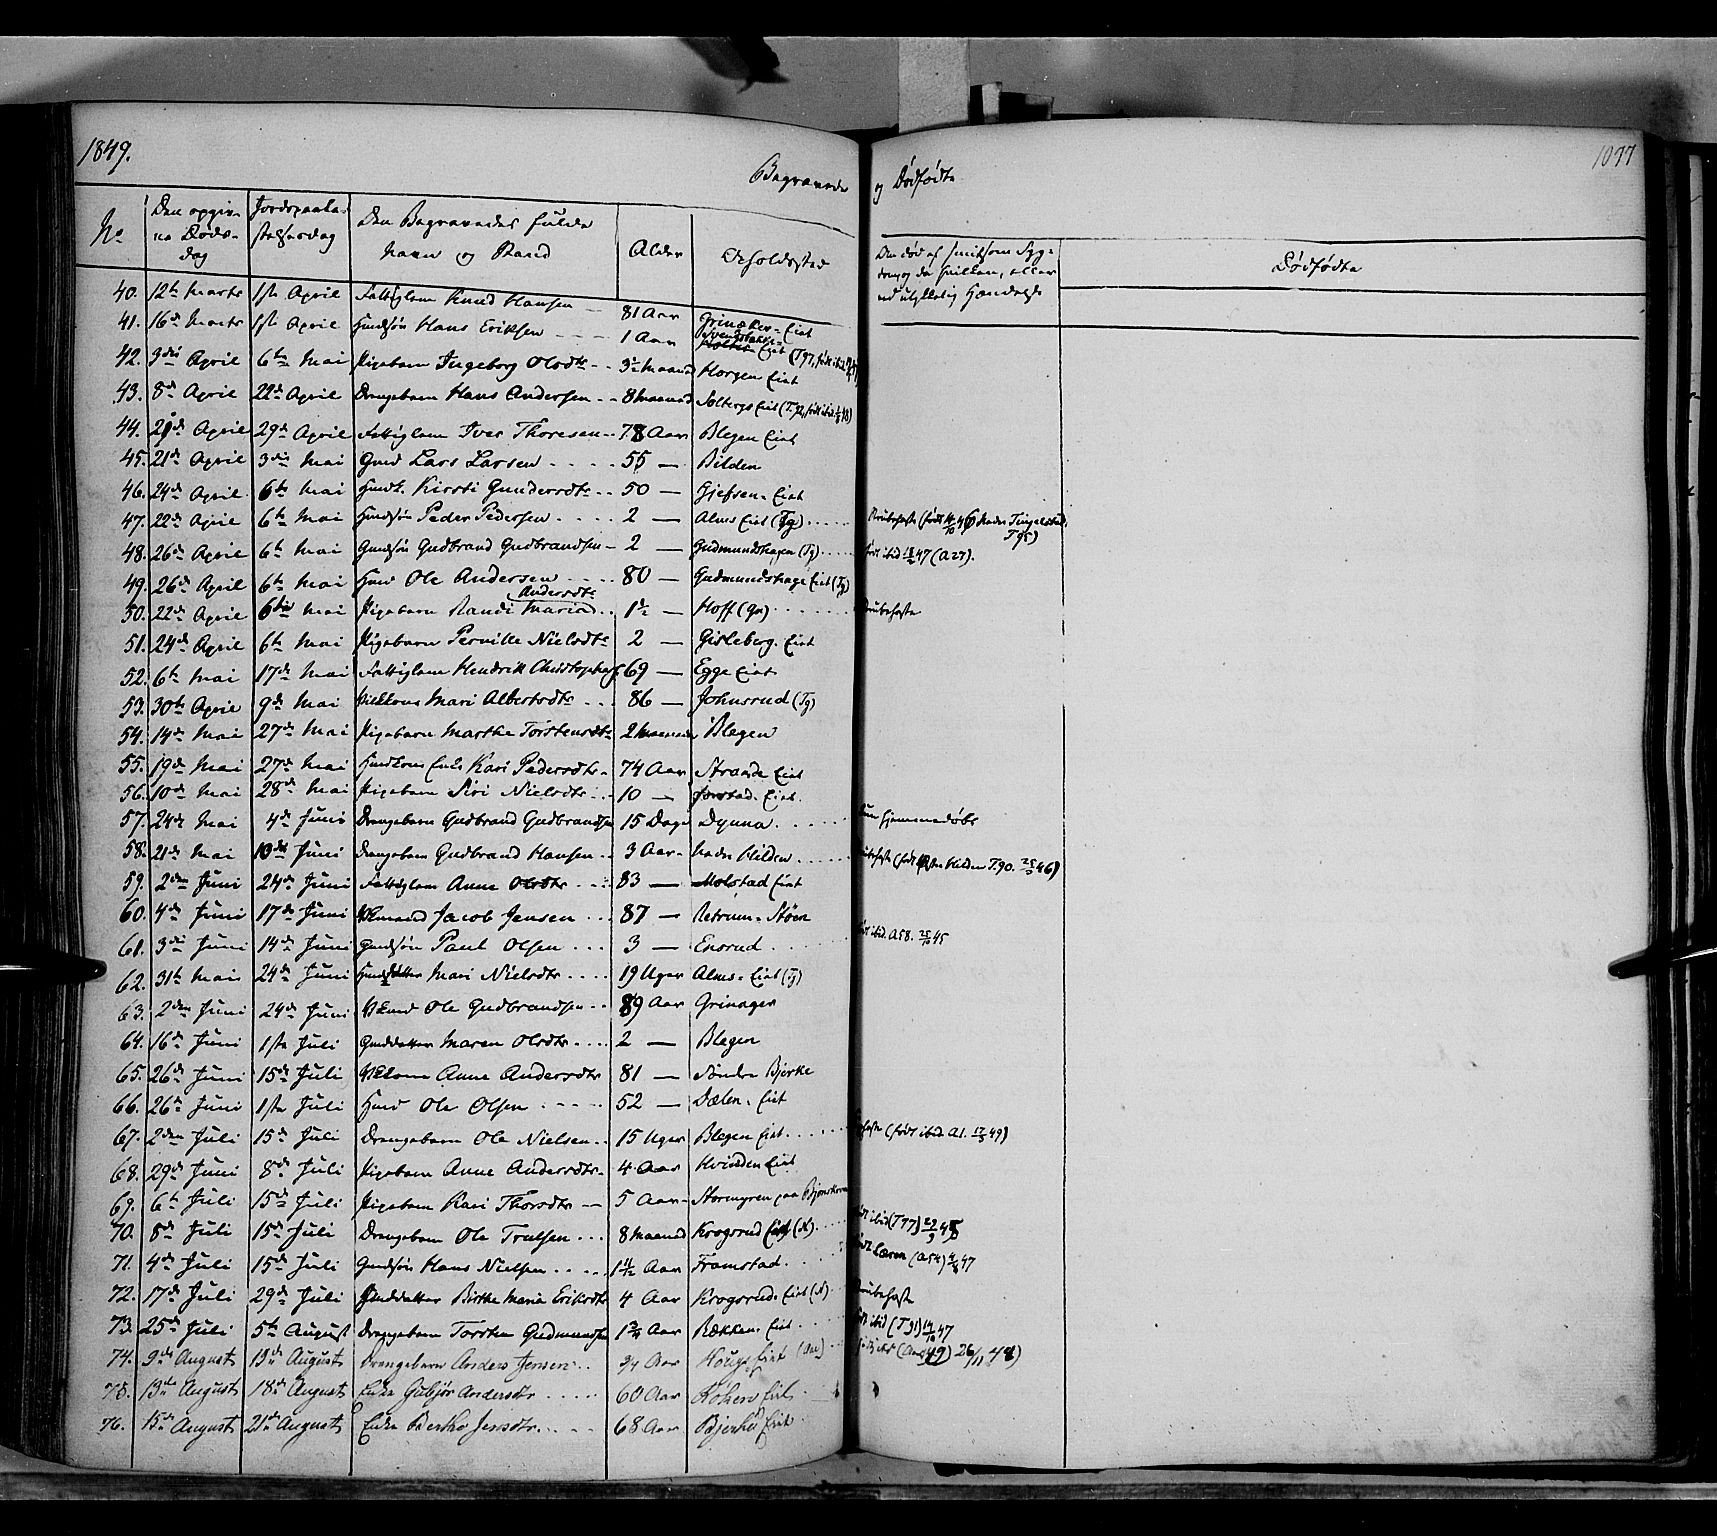 1849.
1077
Begravede
og Dødfødte
No
Den opgivne Døds-dag
Jordspaakastelsesdag
Den Begravedes fulde Navn og Stand
Alder
Opholdssted
Dødfødte
40. 12te Marts 1ste April Fattiglem Knud Hansen 81 Aar Grinaker Eiet
41. 16de Marts 1ste April Huusm. søn Hans Eriksen 1 Aar
42. 3die April 6te Mai Pigebarn Ingeborg Olsdtr 3½ Maaned Horgen Eiet
43. 8de April 22de April Drengebarn Hans Andersen 8 Maaned Solbergs Eiet
44. 21de April 29de April Fattiglem Iver Thoresen 78 Aar Blegen Eiet
45. 21de April 3die Mai Gmd Lars Larsen 55 — Bilden
46. 24de April 6te Mai Huusk. Kirsti Gundersdtr 50 — Gjefsen Eiet
47. 22de April 6te Mai Huussøn Peder Pedersen 2 — Alms Eiet (Tg)
48. 26de April 6te Mai Gmdsøn Gudbrand Gudbrandsen 2 — Gudmundshagen (Tg) født ibid 47 (A 27).
49. 26de April 6te Mai Huusmd Ole Andersen 80 — Gudmundshage Eiet (Tg)
50. 22de April 6te Mai Pigebarn Randi Maria Andersdtr 1½ — Hoff (Gr) Strubehoste
51. 24de April 6te Mai Pigebarn Pernille Nielsdtr 2 — Gisleberg. Eiet
52. 6te Mai 17de Mai Fattiglem Hendrik Christophers 69 — Egge Eiet
53. 30te April 9de Mai Mari Albertsdtr 86 — Johnsrud (Tg)
54. 14de Mai 27de Mai Pigebarn Marthe Torstensdtr 2 Maaneder Blegen
55. 19de Mai 27de Mai Enke Kari Pedersdtr 74 Aar Straade Eiet
56. 10de Mai 28de Mai Pigebarn Siri Nielsdtr 10 — Eiet.
57. 24de Mai 4de Juni Drengebarn Gudbrand Gudbrandsen 15 Dage Dynna hjemmedøbt
58. 21de Mai 10de Juni Drengebarn Gudbrand Hansen 3 Aar Nedre Hilden
59. 2den Juni 24de Juni Fattiglem Anne Olsdtr 83 — Molstad Eiet
60. 4de Juni 17de Juni Jacob Jensen 87 — Retrum-Støen
61. 3die Juni 14de Juni Gmdsøn Paul Olsen 3 — Ensrud født ibid. A58. 45
62. 31te Mai 24de Juni Huusm. datter Mari Nielsdtr 19 Uger Alms-Eiet (Tg)
63. 2den Juni 24de Juni Ole Gudbrandsen 89 Aar Grinager
64. 16de Juni 1ste Juli Gmddatter Maren Olsdtr 2 — Blegen
65. 26de Juni 15de Juli Anne Andersdtr 81 — Søndre Bjerke
66. 26de Juni 1ste Juli Huusmd Ole Olsen 52 — Dælen-Eiet
67. 2den Juli 15de Juli Drengebarn Ole Nielsen 15 Uger Blegen Eiet (født ibid. A1. 49)
68. 29de Juni 8de Juli Pigebarn Anne Andersdtr 4 Aar Hvinden Eiet
69. 6te Juli 15de Juli Pigebarn Kari Thorsdtr 5 Aar Stormyren paa
70. 8de Juli 15de Juli Drengebarn Ole Truelsen 8 Maaned Krogsrud Eiet (N) ibid (T77)
71. 4de Juli 15de Juli Gmdsøn Hans Nielsen 1½ Aar Framstad (A 54) 47
72. 17de Juli 29de Juli Gmddatter Birthe Maria Eriksdtr 4 Aar Krogsrud-Eiet (N) Strubehoste
73. 25de Juli 5te August Drengebarn Torsten Gudmundsen 1¾ Aar Rækken-Eiet ibid (T91) 47
74. 9de August 19de August Drengebarn Anders Jensen ¾ Aar Houg Eiet 26/11 48)
75. 13de August 18de August Enke Gubjør Andersdtr 60 Aar Koken Eiet
76. 15de August 21de August Enke Berthe Jensdtr 68 Aar Bjerke Eiet